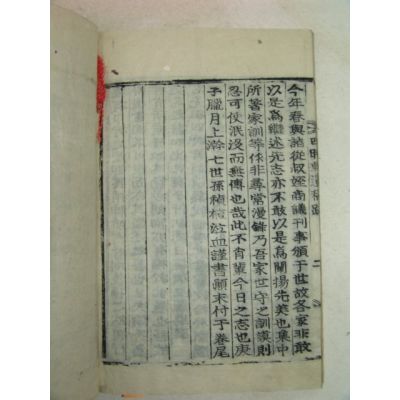 今年春與諸從叔姪商議刊事頒于世故各家非敢
以是爲繼述先志亦不敢以是爲闡揚先美也集中
所著家訓等作非尋常漫錄乃吾家世守之訓謨則
忍可使泯沒而無傳也哉此不肖輩今日之志也庚
子臘月上澣七世孫楨楨泣血謹書顚末付于卷尾